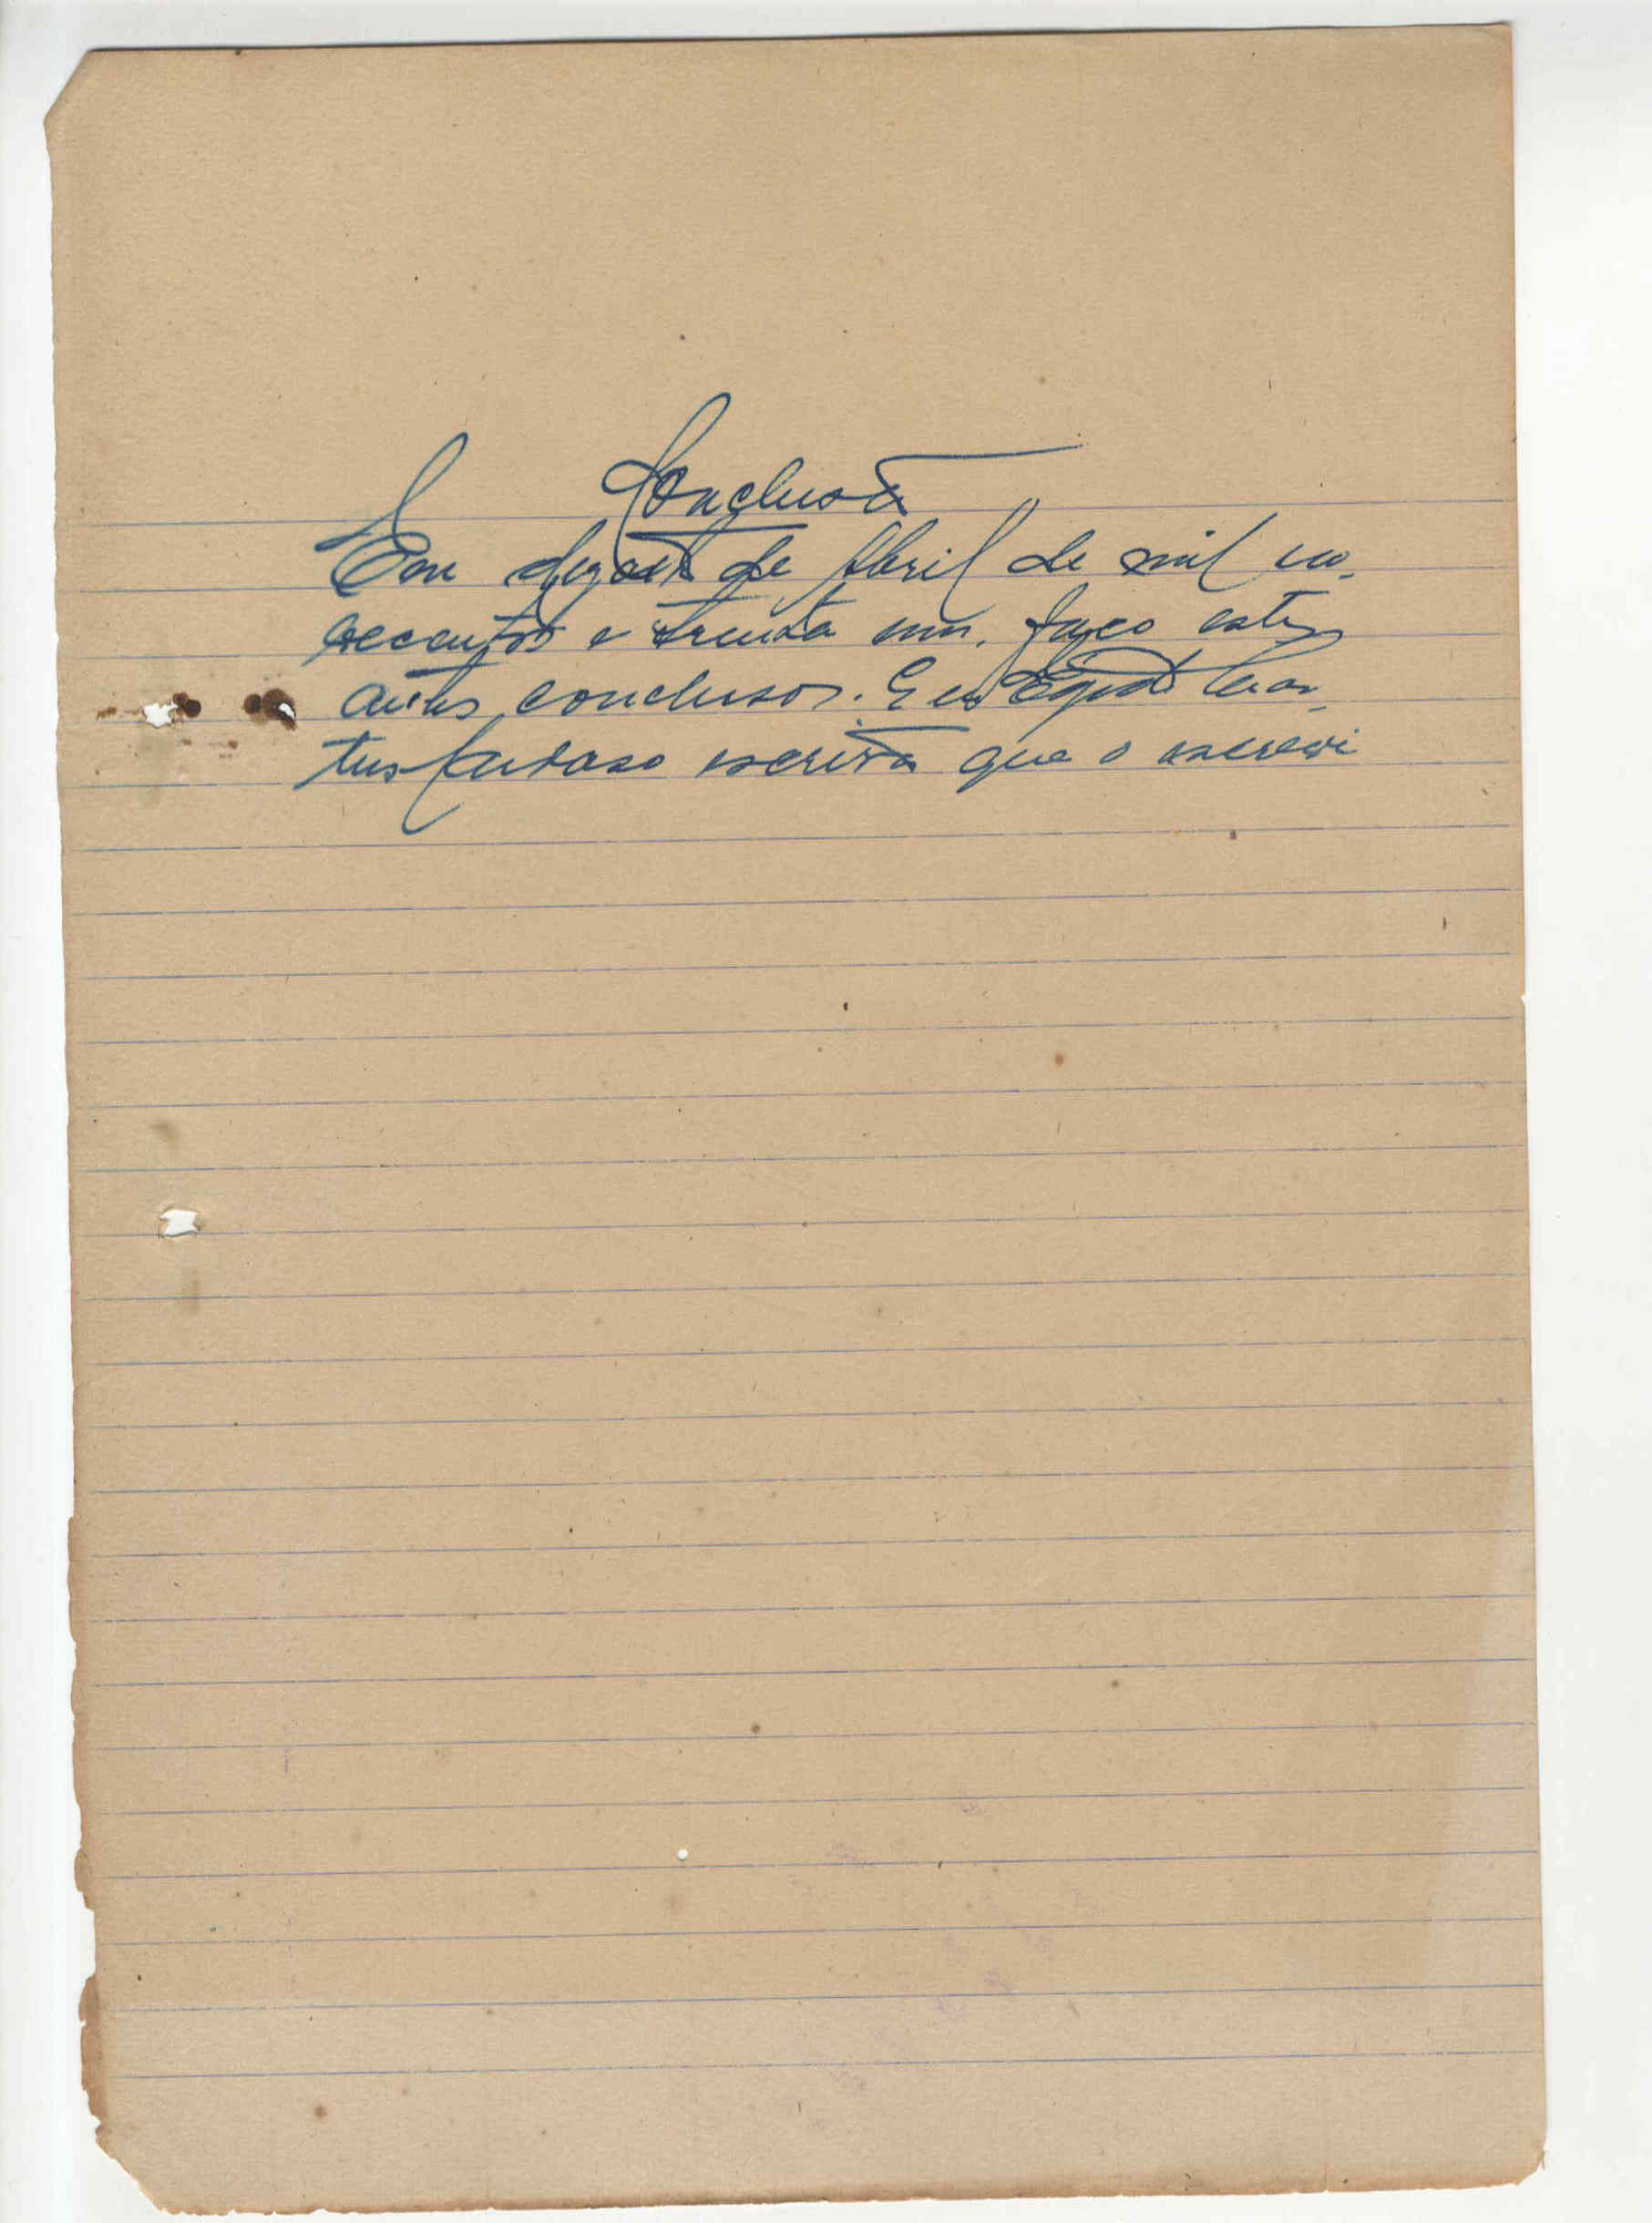 Conclusão
Em dezoito de Abril de mil no-
vecentos e trinta um. faço estes
autos conclusos. E eu
escrivão que o escrevi